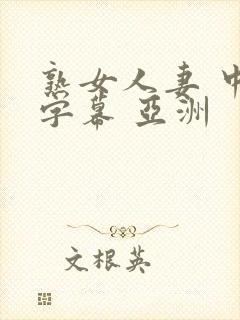 熟女人妻 中
字幕 亞洲
文根英